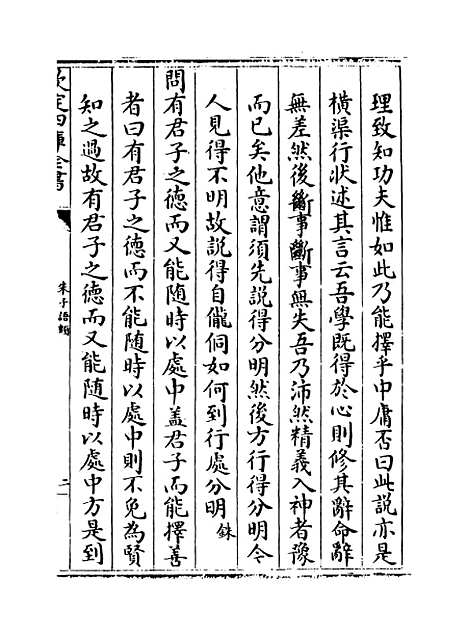 理致知功夫惟如此乃能擇乎中庸否曰此說亦是
橫渠行狀述其言云吾學既得於心則修其辭命辭
無差然後斷事斷事無失吾乃沛然精義入神者豫
而已矣他意謂須先說得分明然後方行得分明今
人見得不明故說得自儱侗如何到行處分明銖
問有君子之德而又能隨時以處中盖君子而能擇善
者曰有君子之德而不能隨時以處中則不免為賢
知之過故有君子之德而又能隨時以處中方是到
欽定四庫全書
朱子語類
二